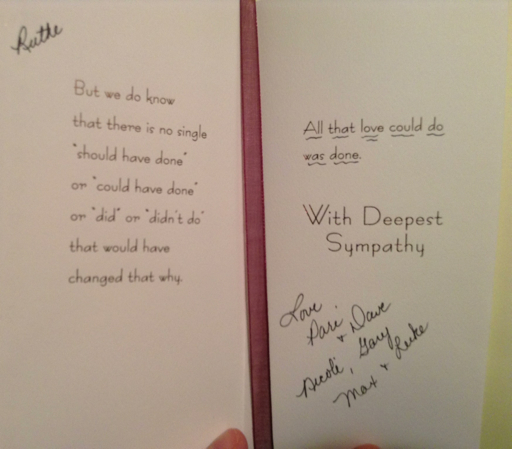 Ruthe
But we do know
that there is no single
"should have done"
or "could have done"
or "did" or "didn't do"
that would have
changed that why.
All that love could do
was done.
With Deepest
Sympathy
Love
Pari + Dave
Nicoli, Gary
Max + Luke